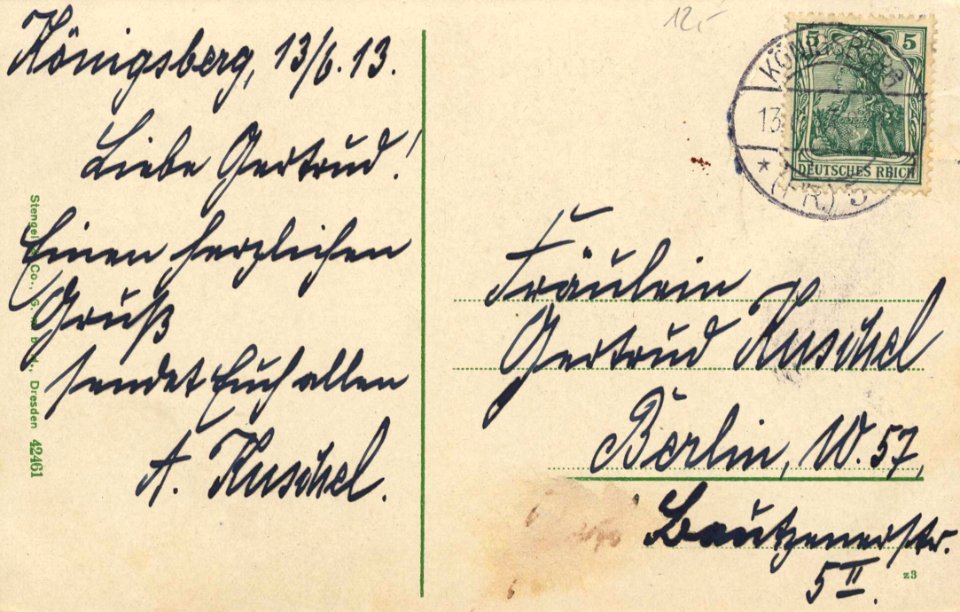 12,-
Königsberg, 13/6.13.
Liebe Gertrud!
Einen herzlichen
Gruß
sendet Euch allen
A. Kuschel.
Stengel & Co., G. m. b. H., Dresden 42461
5 5
DEUTSCHES REICH
KÖNIGSBERG
13.
* (PR.) 5
Fräulein
Gertrud Kuschel
Berlin, W. 57,
Bautzenerstr.
5 II.
z3